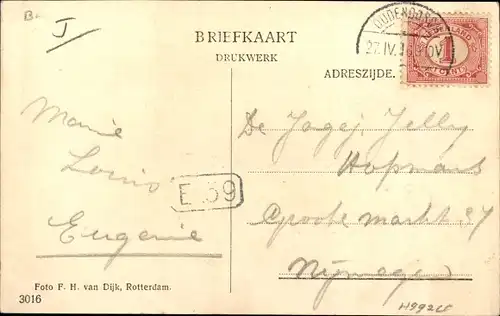 I
BRIEFKAART
DRUKWERK
ADRESZIJDE.
OUDENBOSCH
27.IV.16
NEDERLAND
1
CENT
De Jagej. Jelley
Hopmans
Groote markt 37
Nijmegen
Marie
Louis
Eugenie
E 59
Foto F. H. van Dijk, Rotterdam.
3016